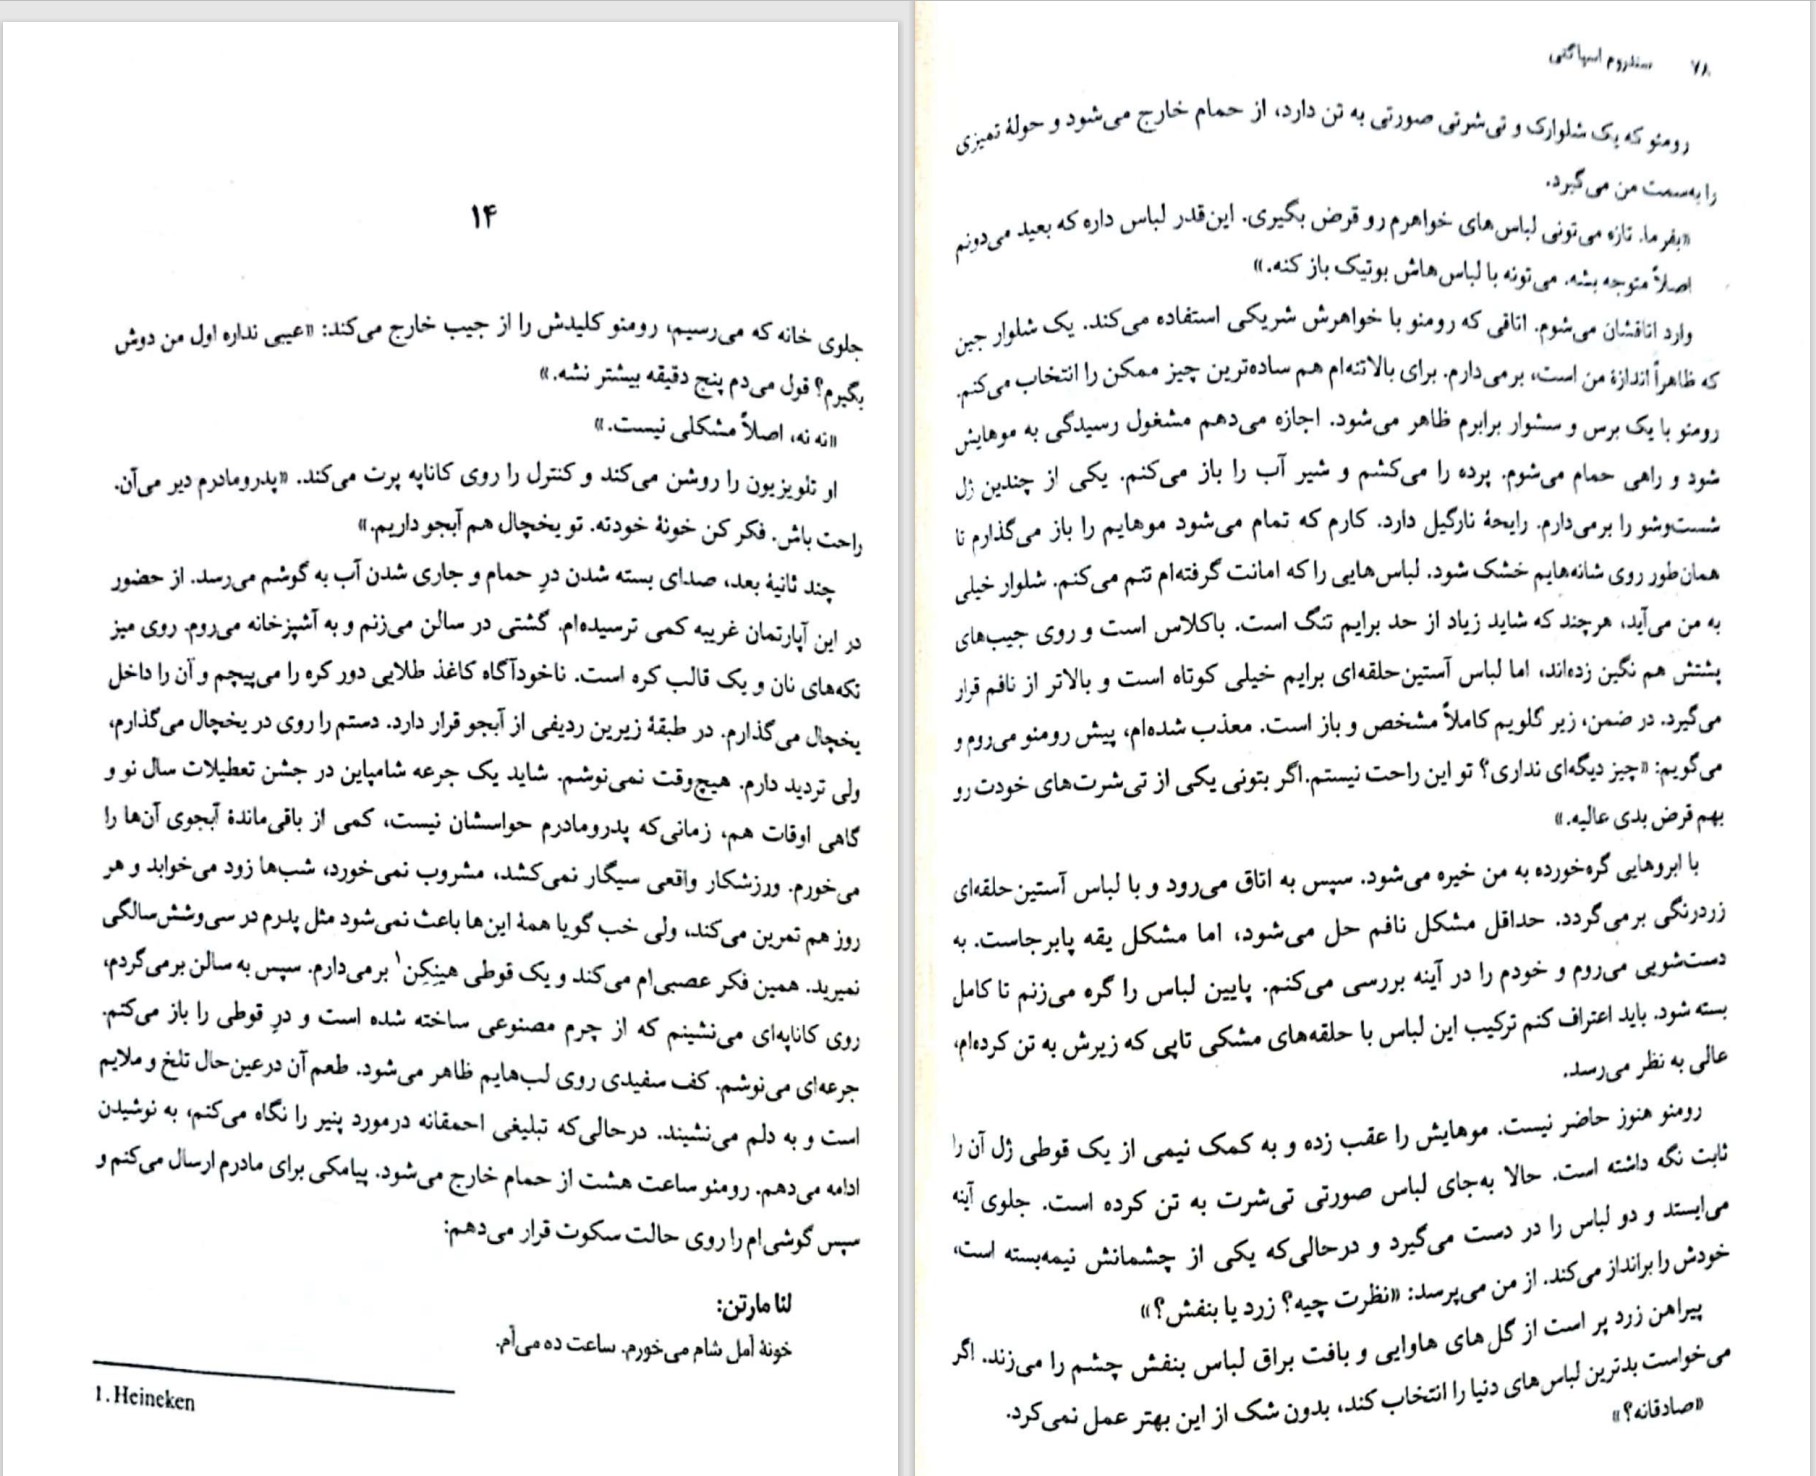 ۱۴
جلوی خانه که می‌رسیم، رومئو کلیدش را از جیب خارج می‌کند: «عیبی نداره اول من دوش
بگیرم؟ قول می‌دم پنج دقیقه بیشتر نشه.»
«نه نه، اصلاً مشکلی نیست.»
او تلویزیون را روشن می‌کند و کنترل را روی کاناپه پرت می‌کند. «پدرومادرم دیر می‌آن.
راحت باش. فکر کن خونهٔ خودته. تو یخچال هم آبجو داریم.»
چند ثانیهٔ بعد، صدای بسته شدن درِ حمام و جاری شدن آب به گوشم می‌رسد. از حضور
در این آپارتمان غریبه کمی ترسیده‌ام. گشتی در سالن می‌زنم و به آشپزخانه می‌روم. روی میز
تکه‌های نان و یک قالب کره است. ناخودآگاه کاغذ طلایی دور کره را می‌پیچم و آن را داخل
یخچال می‌گذارم. در طبقهٔ زیرین ردیفی از آبجو قرار دارد. دستم را روی در یخچال می‌گذارم،
ولی تردید دارم. هیچ‌وقت نمی‌نوشم. شاید یک جرعه شامپاین در جشن تعطیلات سال نو و
گاهی اوقات هم، زمانی‌که پدرومادرم حواسشان نیست، کمی از باقی‌ماندهٔ آبجوی آن‌ها را
می‌خورم. ورزشکار واقعی سیگار نمی‌کشد، مشروب نمی‌خورد، شب‌ها زود می‌خوابد و هر
روز هم تمرین می‌کند، ولی خب گویا همهٔ این‌ها باعث نمی‌شود مثل پدرم در سی‌وشش‌سالگی
نمیرید. همین فکر عصبی‌ام می‌کند و یک قوطی هینِکِن۱ برمی‌دارم. سپس به سالن برمی‌گردم،
روی کاناپه‌ای می‌نشینم که از چرم مصنوعی ساخته شده است و درِ قوطی را باز می‌کنم.
جرعه‌ای می‌نوشم. کف سفیدی روی لب‌هایم ظاهر می‌شود. طعم آن درعین‌حال تلخ و ملایم
است و به دلم می‌نشیند. درحالی‌که تبلیغی احمقانه درمورد پنیر را نگاه می‌کنم، به نوشیدن
ادامه می‌دهم. رومئو ساعت هشت از حمام خارج می‌شود. پیامکی برای مادرم ارسال می‌کنم و
سپس گوشی‌ام را روی حالت سکوت قرار می‌دهم:
لنا مارتن:
خونهٔ اَمل شام می‌خورم. ساعت ده می‌آم.
1. Heineken
۷۸ سندروم اسپاگتی
رومئو که یک شلوارک و تی‌شرتی صورتی به تن دارد، از حمام خارج می‌شود و حولهٔ تمیزی
را به‌سمت من می‌گیرد.
«بفرما. تازه می‌تونی لباس‌های خواهرم رو قرض بگیری. این‌قدر لباس داره که بعید می‌دونم
اصلاً متوجه بشه. می‌تونه با لباس‌هاش بوتیک باز کنه.»
وارد اتاقشان می‌شوم. اتاقی که رومئو با خواهرش شریکی استفاده می‌کند. یک شلوار جین
که ظاهراً اندازهٔ من است، برمی‌دارم. برای بالاتنه‌ام هم ساده‌ترین چیز ممکن را انتخاب می‌کنم.
رومئو با یک برس و سشوار برابرم ظاهر می‌شود. اجازه می‌دهم مشغول رسیدگی به موهایش
شود و راهی حمام می‌شوم. پرده را می‌کشم و شیر آب را باز می‌کنم. یکی از چندین ژل
شست‌وشو را برمی‌دارم. رایحهٔ نارگیل دارد. کارم که تمام می‌شود موهایم را باز می‌گذارم تا
همان‌طور روی شانه‌هایم خشک شود. لباس‌هایی را که امانت گرفته‌ام تنم می‌کنم. شلوار خیلی
به من می‌آید، هرچند که شاید زیاد از حد برایم تنگ است. باکلاس است و روی جیب‌های
پشتش هم نگین زده‌اند، اما لباس آستین‌حلقه‌ای برایم خیلی کوتاه است و بالاتر از نافم قرار
می‌گیرد. در ضمن، زیر گلویم کاملاً مشخص و باز است. معذب شده‌ام، پیش رومئو می‌روم و
می‌گویم: «چیز دیگه‌ای نداری؟ تو این راحت نیستم. اگر بتونی یکی از تی‌شرت‌های خودت رو
بهم قرض بدی عالیه.»
با ابروهایی گره‌خورده به من خیره می‌شود. سپس به اتاق می‌رود و با لباس آستین‌حلقه‌ای
زردرنگی برمی‌گردد. حداقل مشکل نافم حل می‌شود، اما مشکل یقه پابرجاست. به
دست‌شویی می‌روم و خودم را در آینه بررسی می‌کنم. پایین لباس را گره می‌زنم تا کامل
بسته شود. باید اعتراف کنم ترکیب این لباس با حلقه‌های مشکی تاپی که زیرش به تن کرده‌ام،
عالی به نظر می‌رسد.
رومئو هنوز حاضر نیست. موهایش را عقب زده و به کمک نیمی از یک قوطی ژل آن را
ثابت نگه داشته است. حالا به‌جای لباس صورتی تی‌شرت به تن کرده است. جلوی آینه
می‌ایستد و دو لباس را در دست می‌گیرد و درحالی‌که یکی از چشمانش نیمه‌بسته است،
خودش را برانداز می‌کند. از من می‌پرسد: «نظرت چیه؟ زرد یا بنفش؟»
پیراهن زرد پر است از گل‌های هاوایی و بافت براق لباس بنفش چشم را می‌زند. اگر
می‌خواست بدترین لباس‌های دنیا را انتخاب کند، بدون شک از این بهتر عمل نمی‌کرد.
«صادقانه؟»